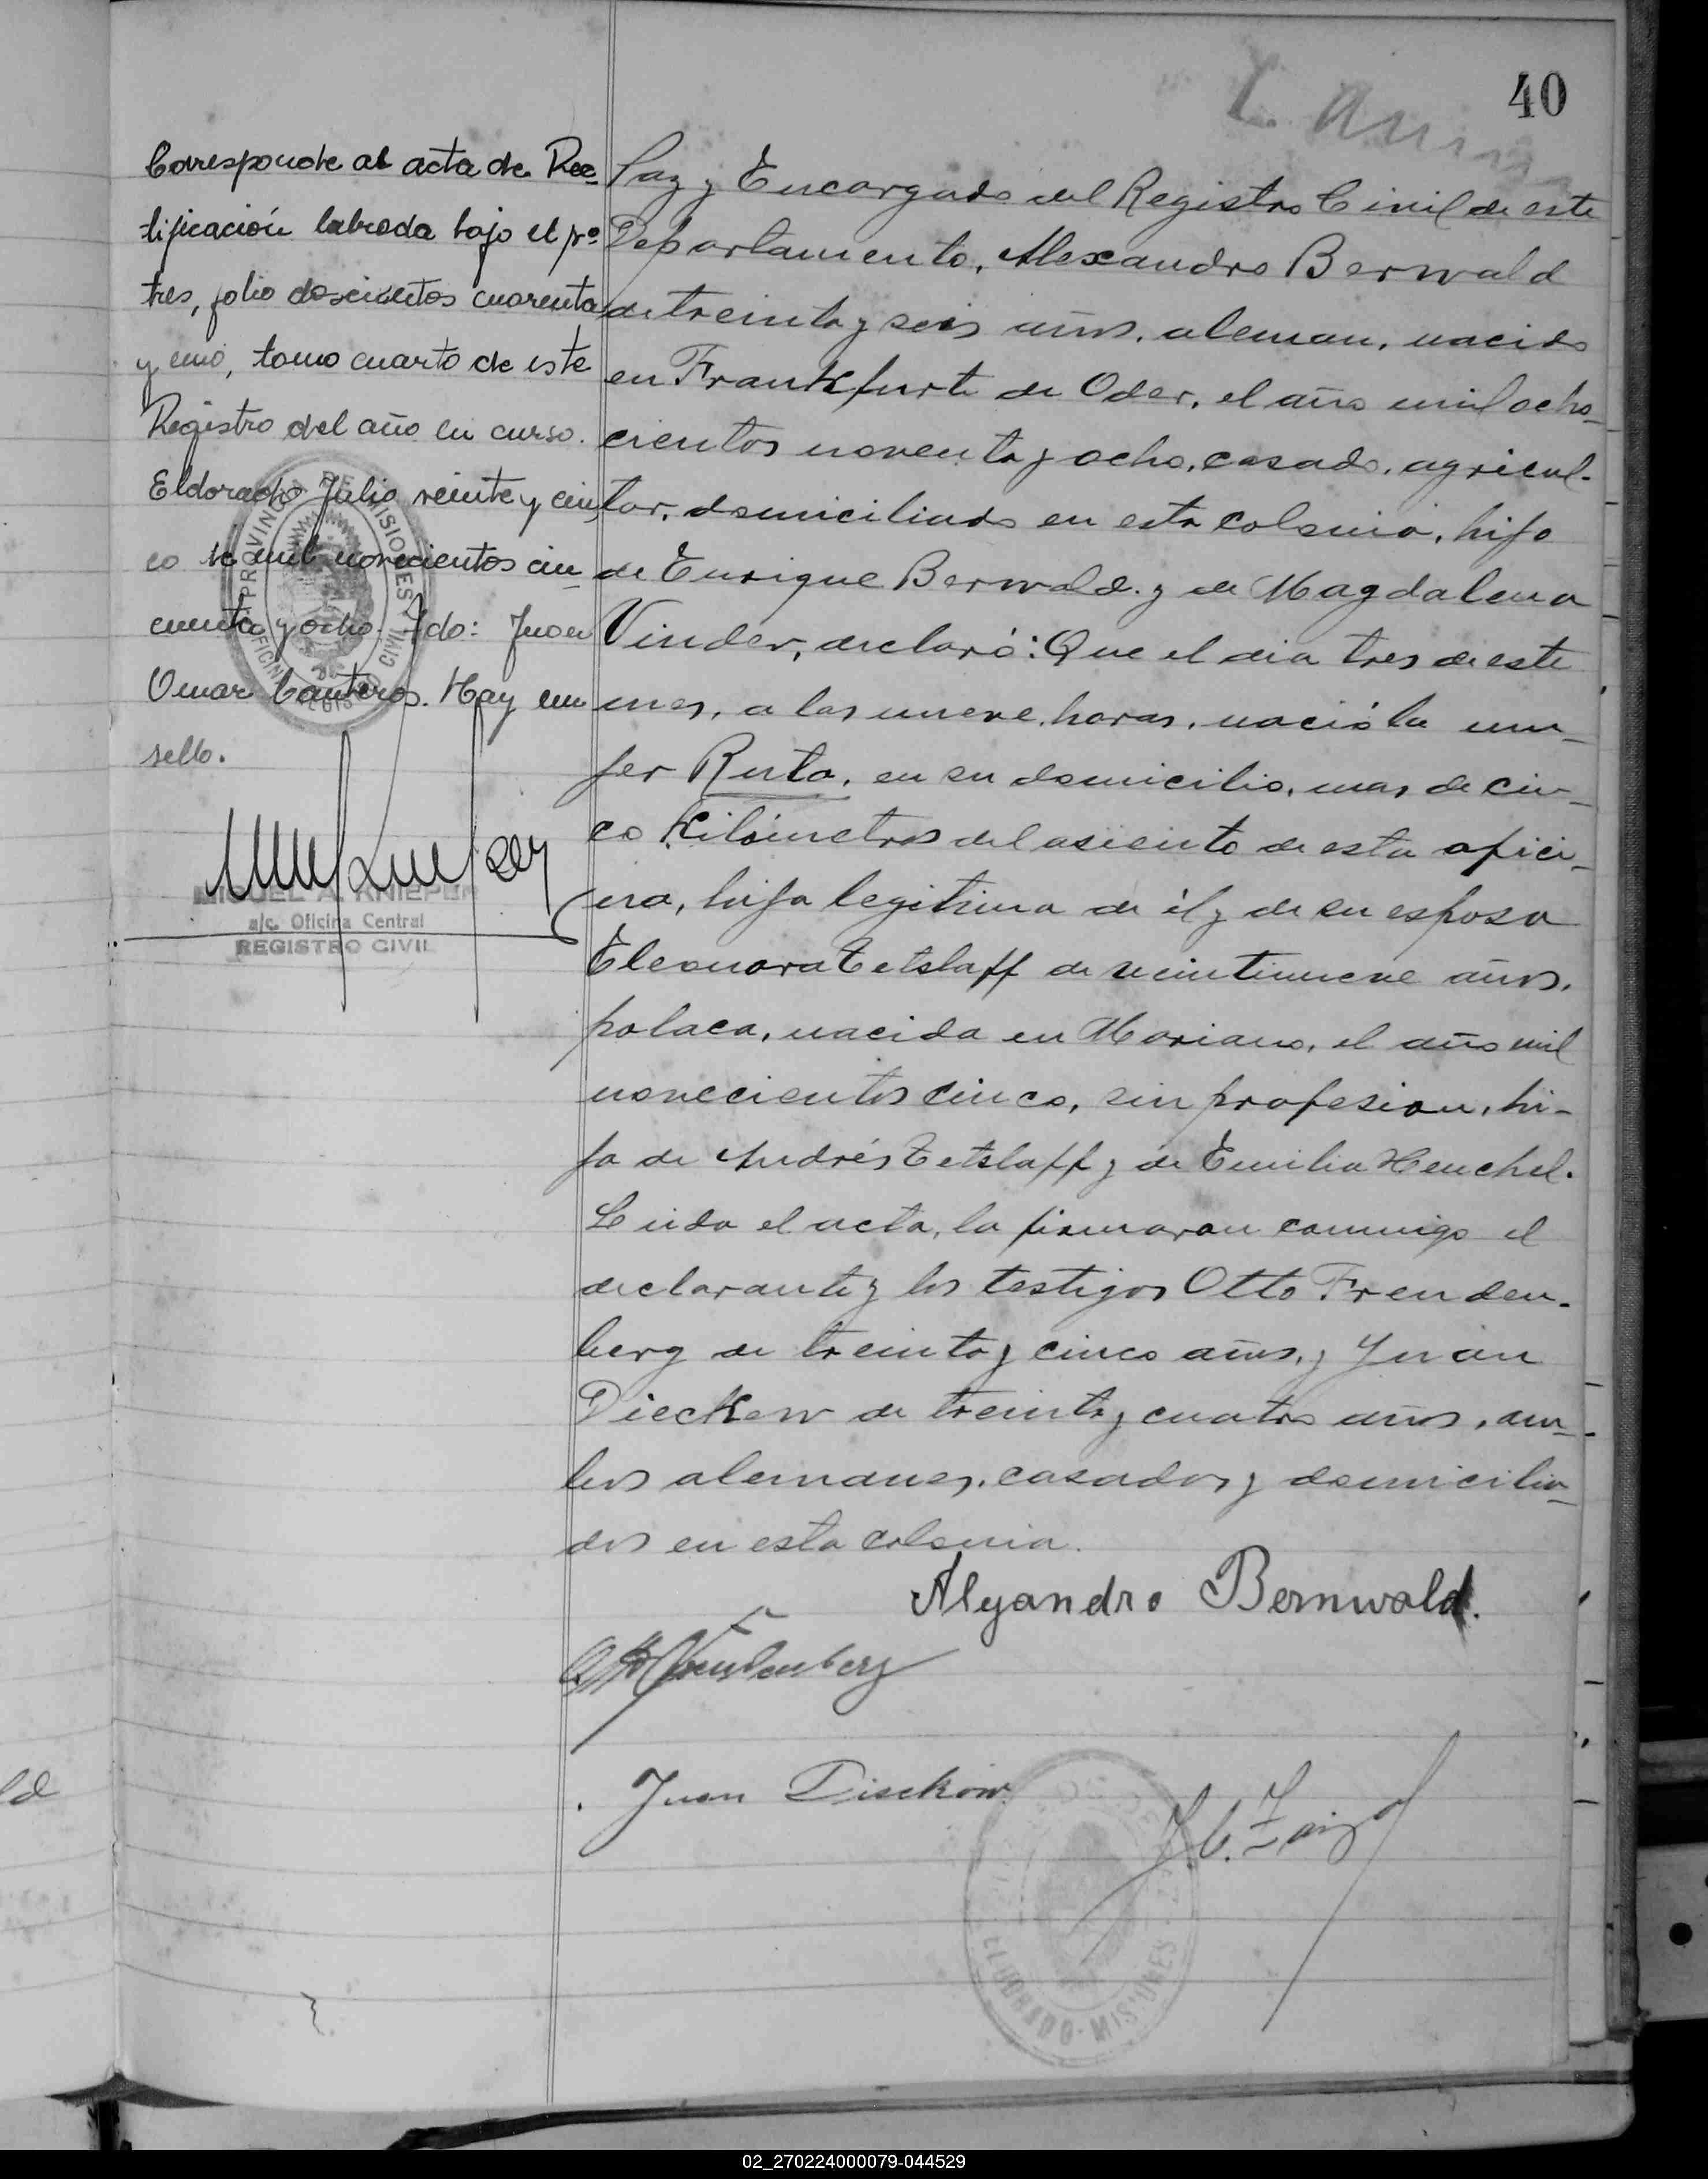 40
Corresponde al acta de Rec-
tificación labrada bajo el nº
tres, folio doscientos cuarenta
y uno, tomo cuarto de este
Registro del año en curso.
Eldorado Julio veinte y cin-
co de mil novecientos cin-
cuenta y ocho. Fdo: Juan
Omar Canteros. Hay un
sello.
PROVINCIA DE MISIONES
OFICINA REGISTRO CIVIL
MIGUEL A. KNIEPER
a/c. Oficina Central
REGISTRO CIVIL
Paz y Encargado del Registro Civil de este
Departamento, Alexandro Berwald
de treinta y seis años, aleman, nacido
en Frankfurt de Oder, el año mil ocho-
cientos noventa y ocho, casado, agricul-
tor, domiciliado en esta colonia, hijo
de Enrique Berwald y de Magdalena
Vinder, declaró: Que el dia tres de este
mes, a las nueve horas, nació la mu-
jer Ruta, en su domicilio, mas de cin-
co Kilómetros del asiento de esta ofici-
na, hija legitima de él y de su esposa
Eleonora Tetslaff de veintinueve años,
polaca, nacida en Mariano, el año mil
novecientos cinco, sin profesion, hi-
ja de Andrés Tetslaff y de Emilia Henchel.
Leida el acta, la firmaron conmigo el
declarante y los testigos Otto Frenden-
berg de treinta y cinco años, y Juan
Dieckow de treinta y cuatro años, am-
bos alemanes, casados y domicilia-
dos en esta colonia.
Alejandro Bernwald.
Otto Freudenberg
Juan Dieckow
ELDORADO-MISIONES
ld
02_270224000079-044529